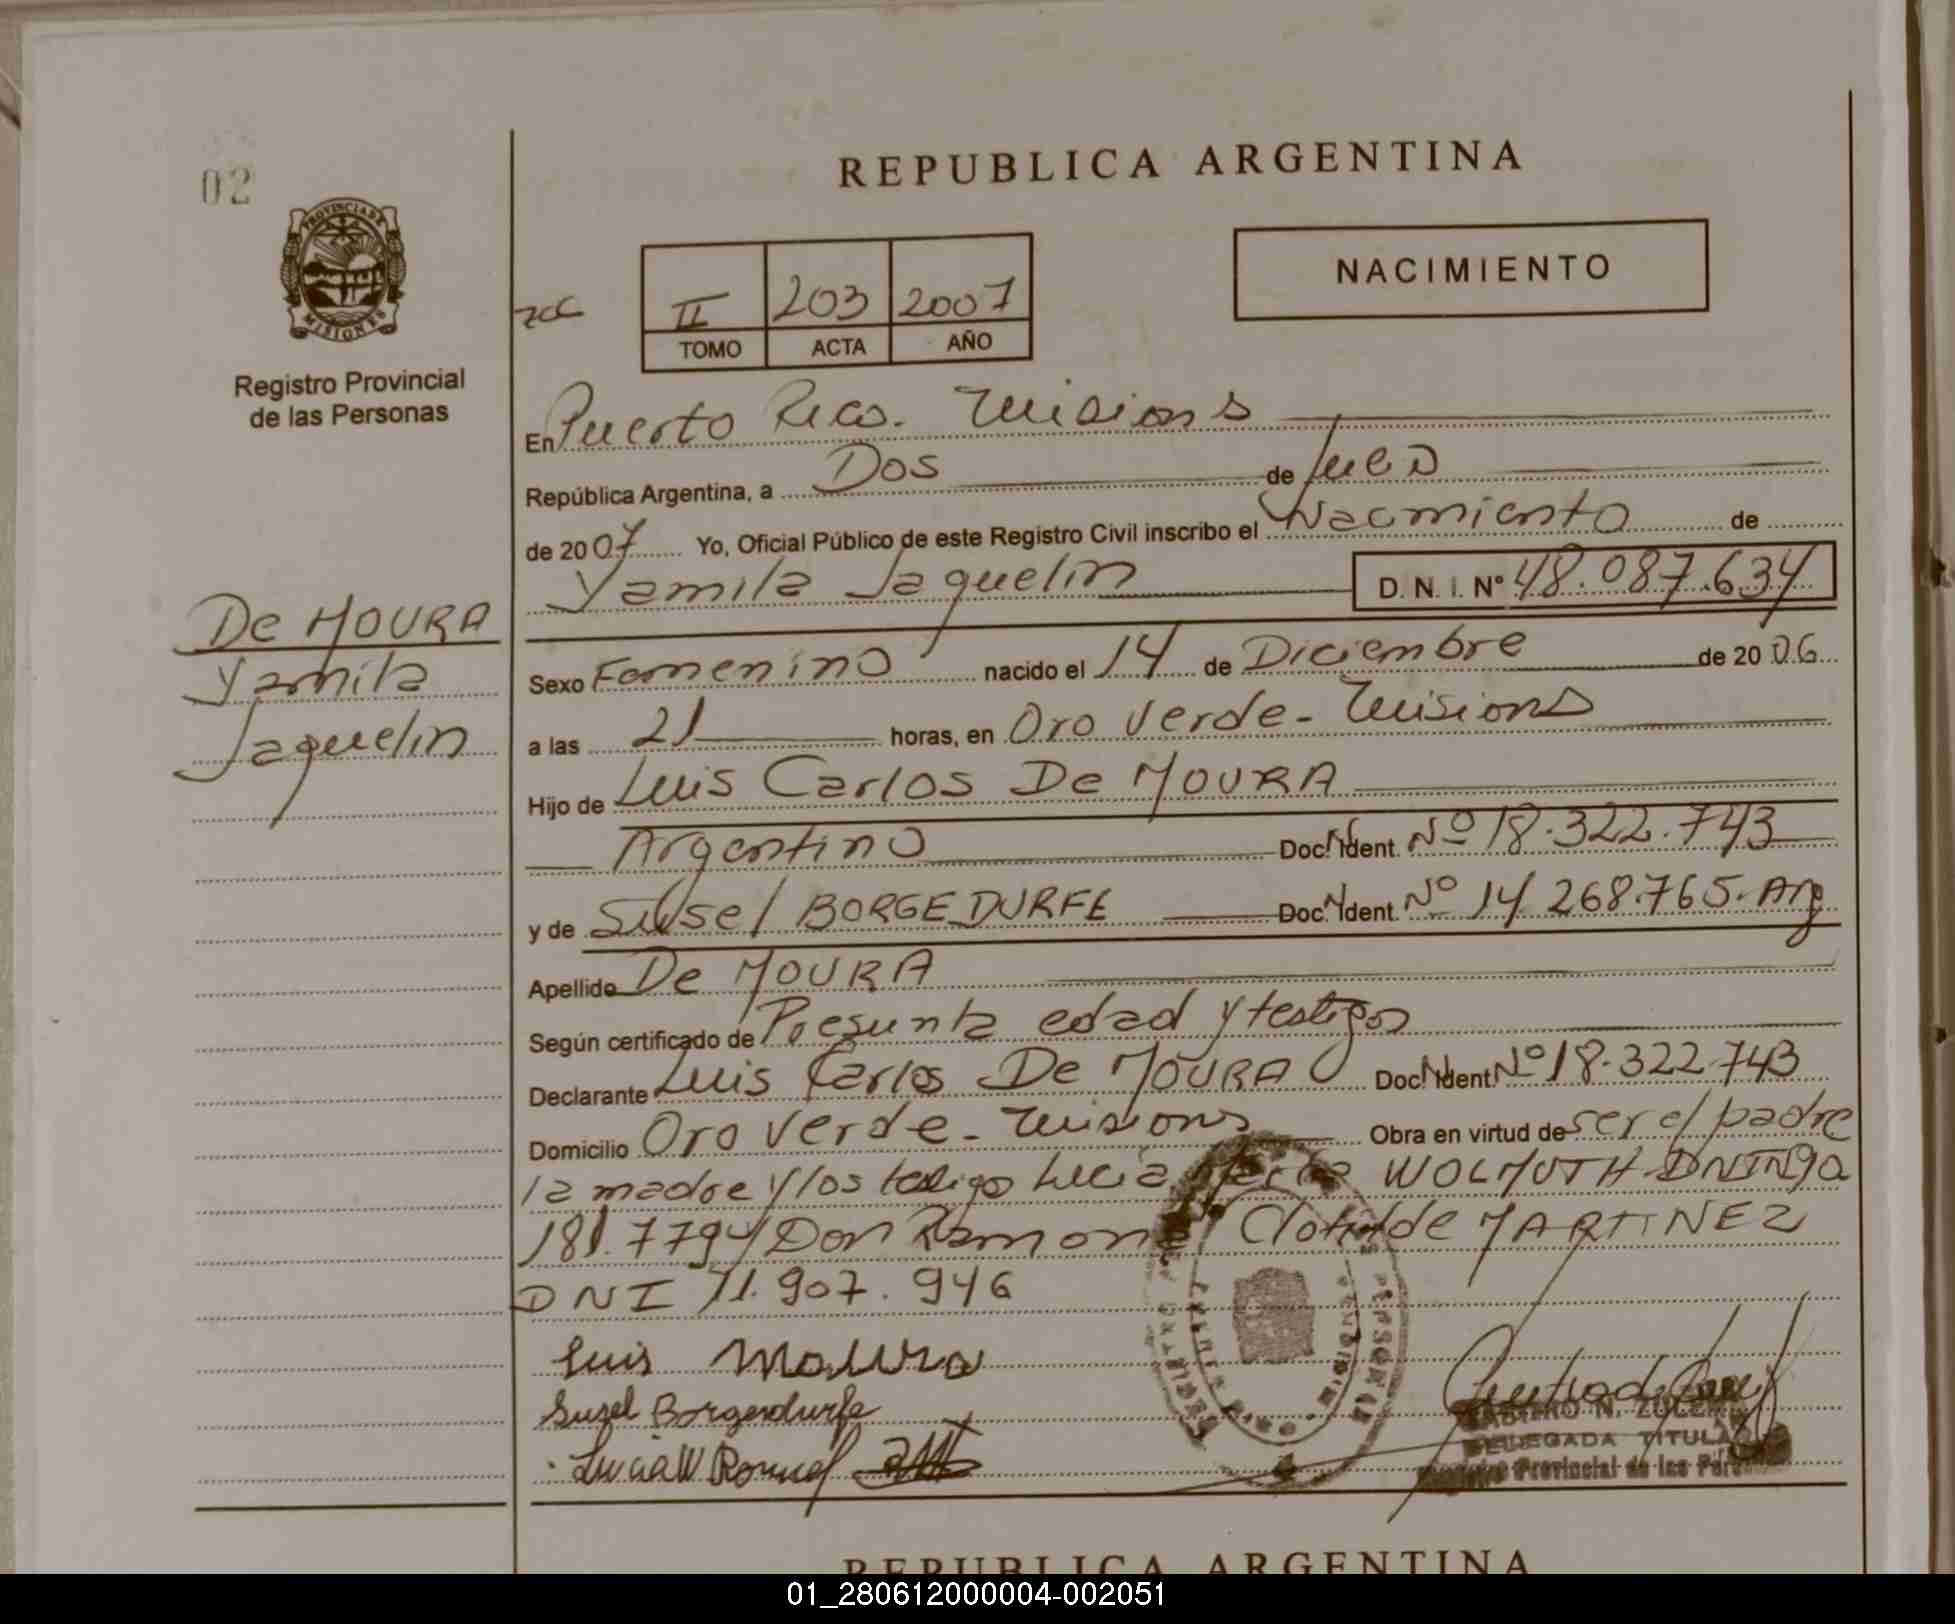 REPUBLICA ARGENTINA
02
PROVINCIA DE
MISIONES
Registro Provincial
de las Personas
NACIMIENTO
II 203 2007
TOMO ACTA AÑO
En Puerto Rico. Misiones
República Argentina, a Dos de Julio
de 2007 Yo, Oficial Público de este Registro Civil inscribo el Nacimiento de
Yamila Jaquelin D. N. I. Nº 48.087.634
De MOURA
Yamila
Jaquelin
Sexo Femenino nacido el 14 de Diciembre de 2006
a las 21 horas, en Oro Verde - Misiones
Hijo de Luis Carlos De MOURA
Argentino Doc. Ident. Nº 18.322.743
y de Susel BORGEDURFE Doc. Ident. Nº 14 268.765. Arg
Apellido De MOURA
Según certificado de Presunta edad y testigos
Declarante Luis Carlos De MOURA Doc. Ident Nº 18.322.743
Domicilio Oro Verde - Misiones Obra en virtud de ser el padre
la madre y los testigos Lucia WOLMUTH DNI
Don Ramon Clotilde MARTINEZ
DNI 11.907.946
Luis Moura
Susel Borgendurfe
Lucia W
N. ZULEMA
DELEGADA TITULAR
Registro Provincial de las Personas
REPUBLICA ARGENTINA
01_280612000004-002051